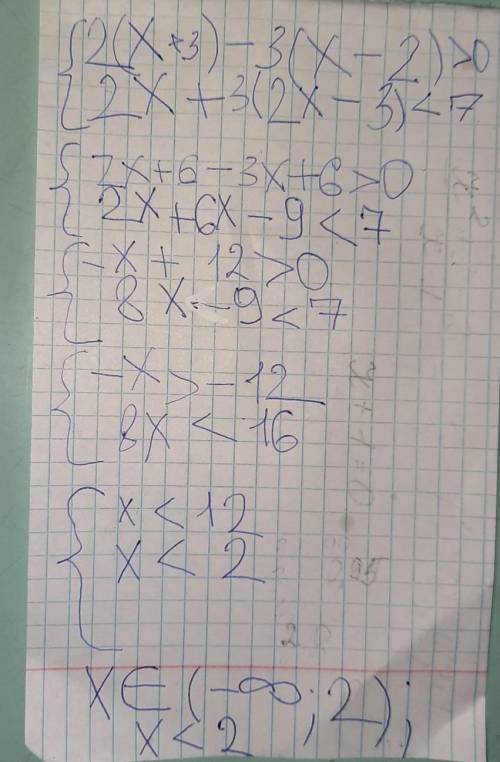 { 2(x+3) - 3(x - 2) > 0
{ 2x + 3(2x - 3) < 7
{ 2x + 6 - 3x + 6 > 0
{ 2x + 6x - 9 < 7
{ -x + 12 > 0
{ 8x - 9 < 7
{ -x > -12
{ 8x < 16
{ x < 12
{ x < 2
x ∈ (-∞; 2);
x < 2